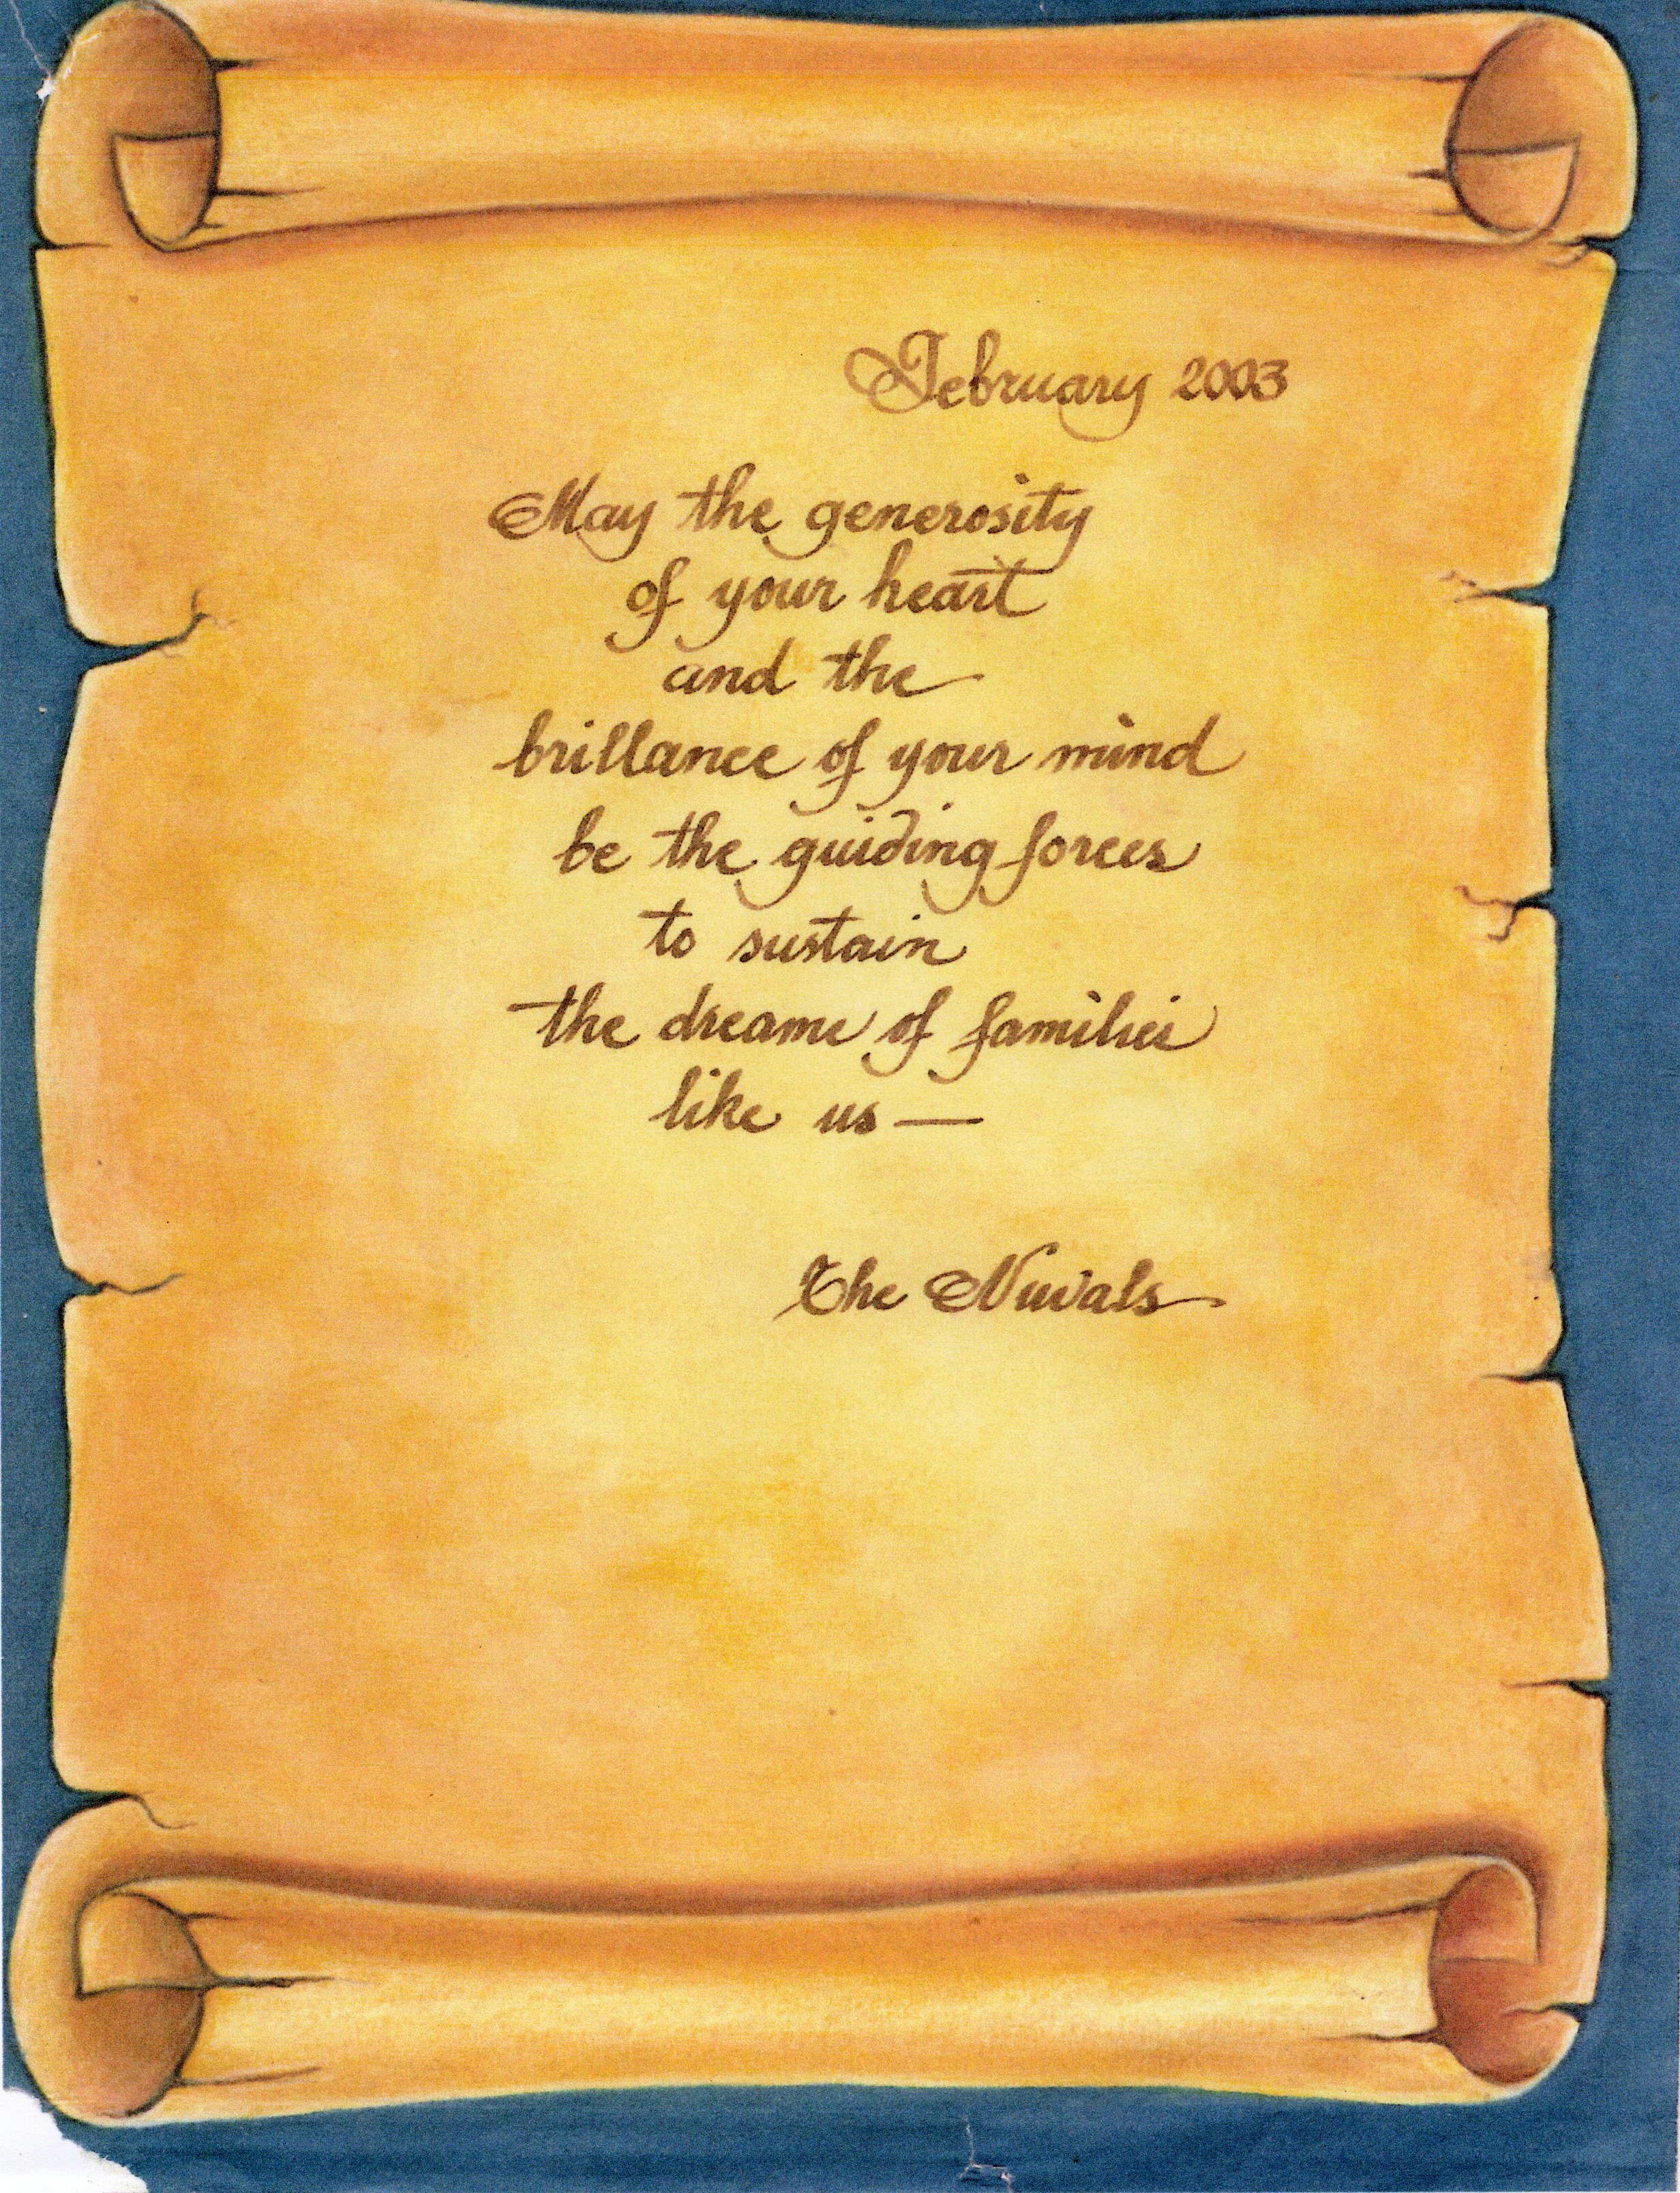 February 2003
May the generosity
of your heart
and the
brillance of your mind
be the guiding forces
to sustain
the dreams of families
like us —
The Nuvals